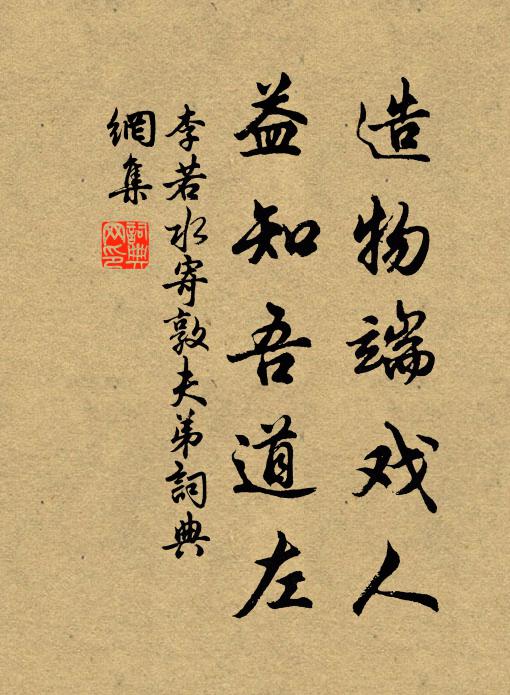 造物端戏人
益知吾道左
李若水寄敦夫弟詞典
網集
詞典
网印